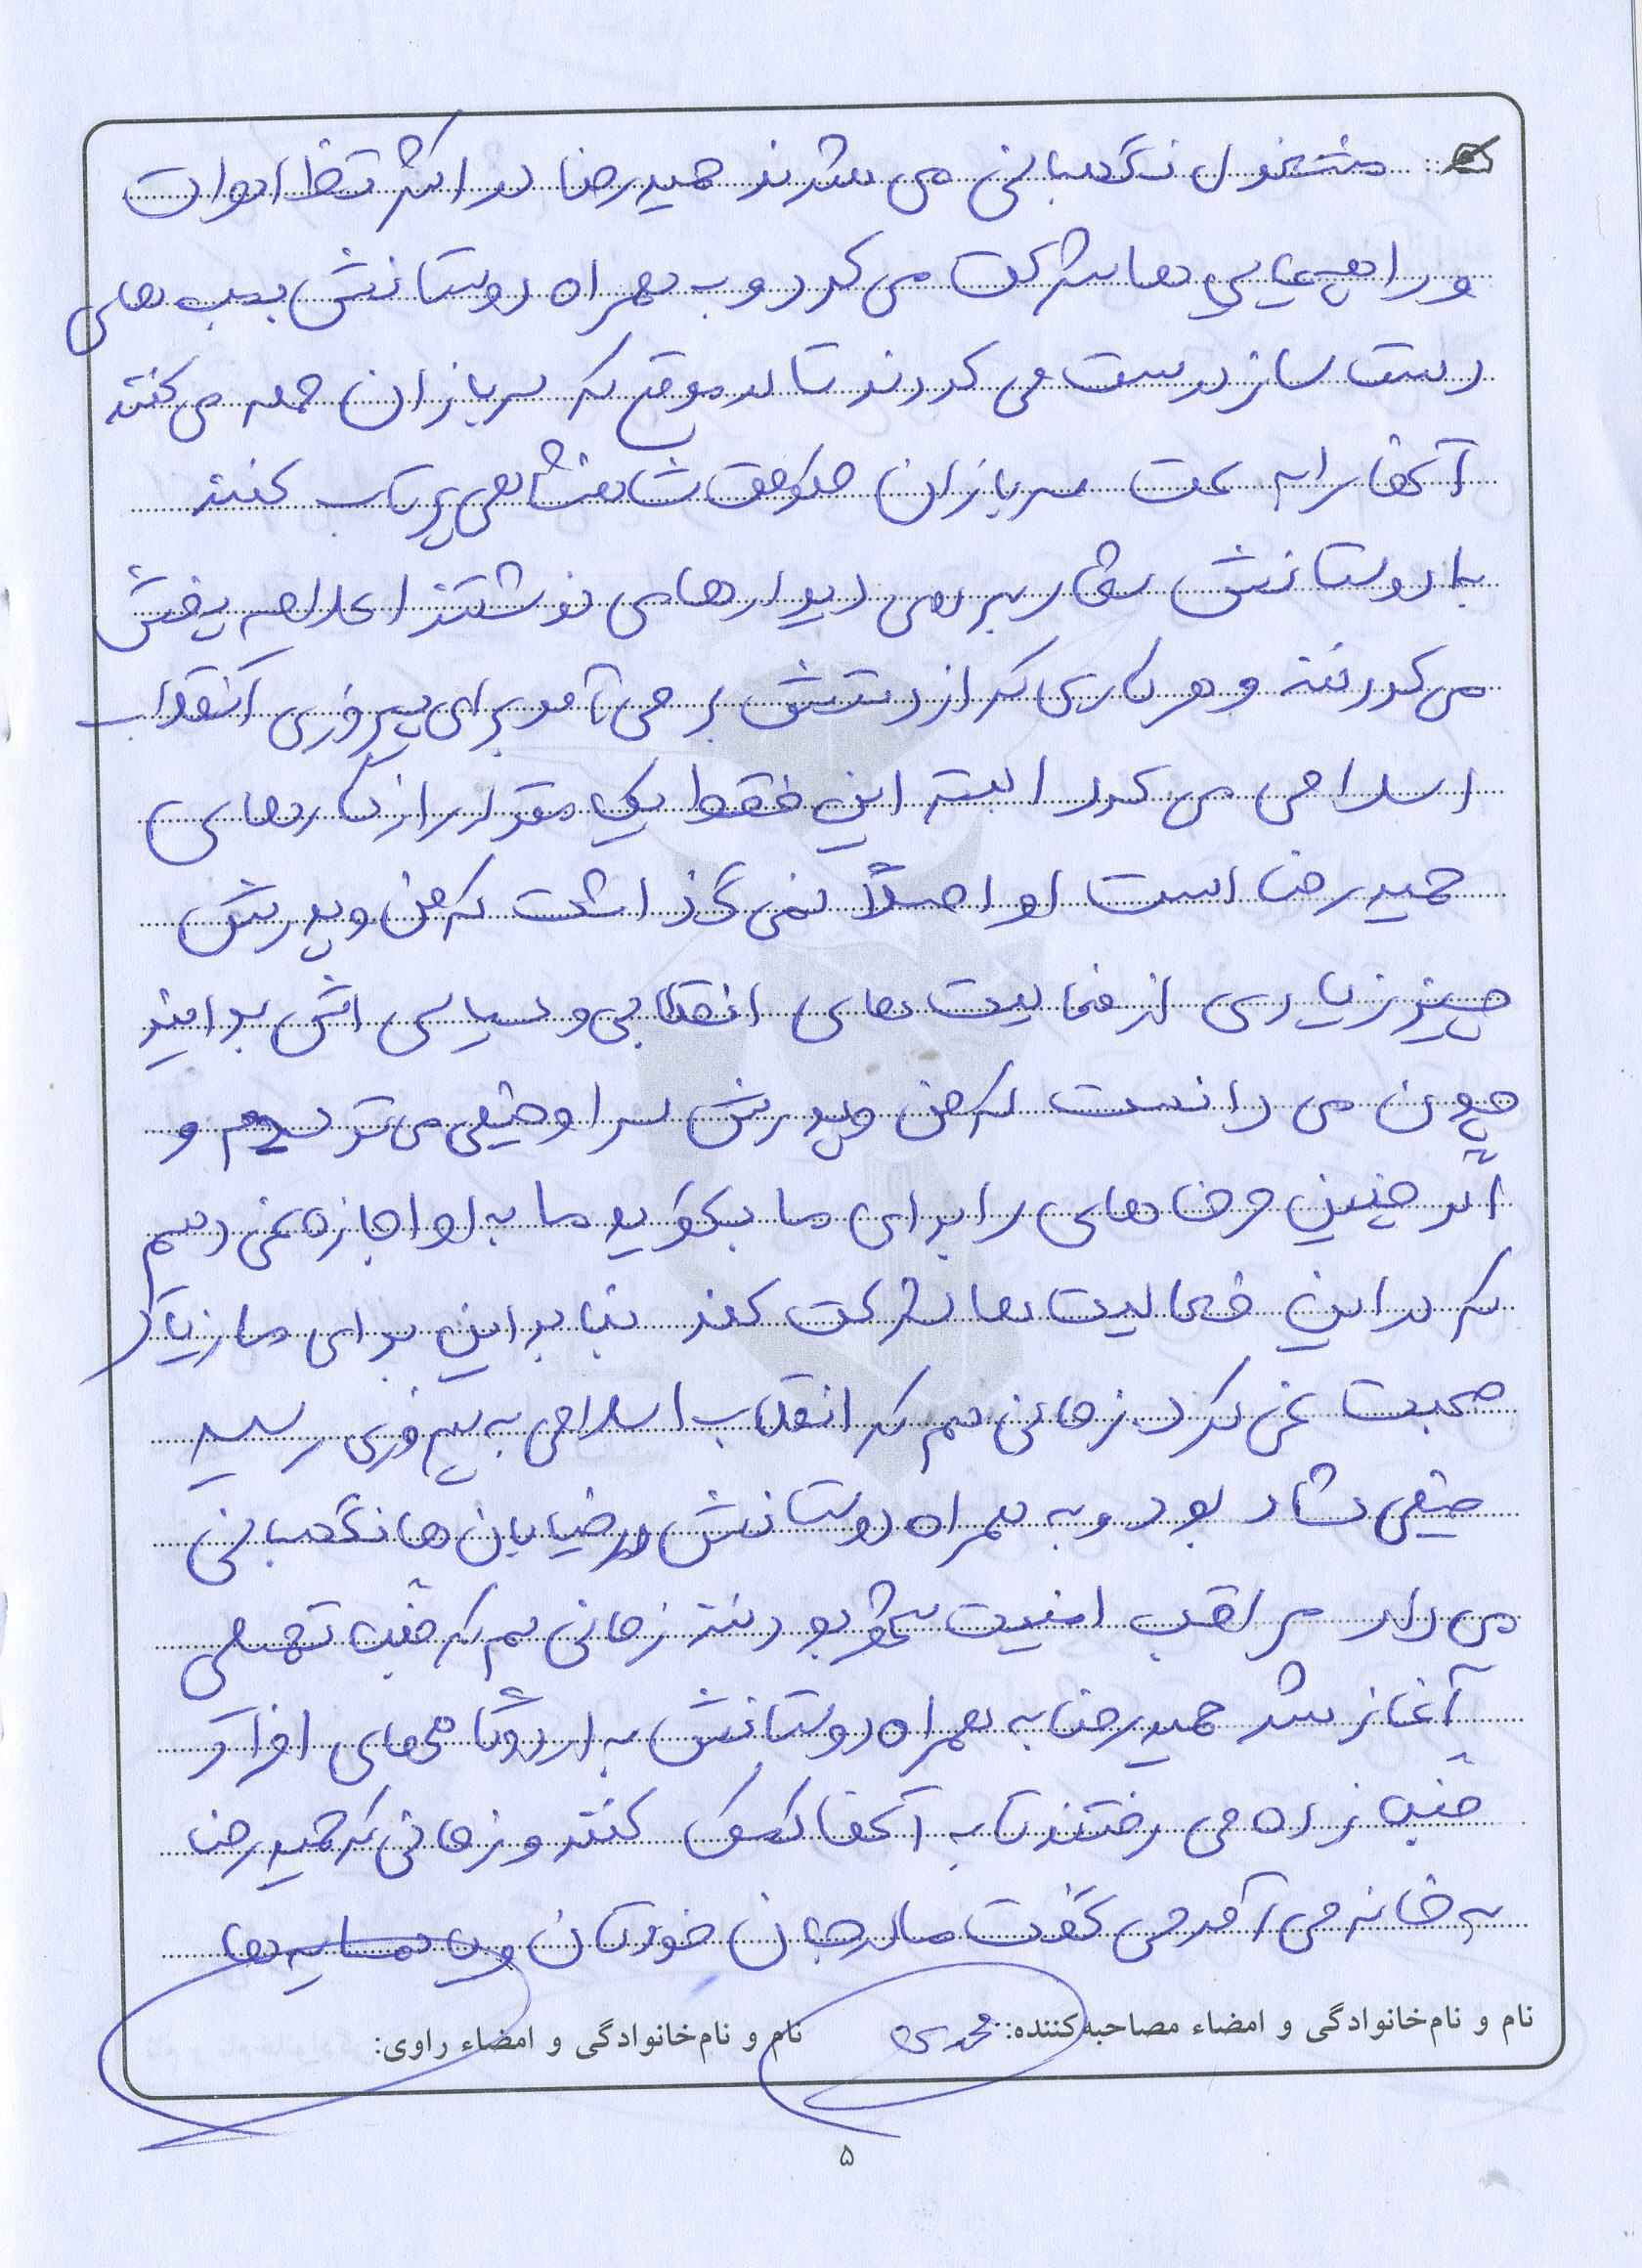 مشغول نگهبانی می شدند حمیدرضا در اکثر تظاهرات
و راهپیمایی ها شرکت می کرد و به همراه دوستانش بمب های
دست ساز درست می کردند تا در موقع که سربازان حمله می کنند
آنها را به سمت سربازان حکومت شاهنشاهی پرتاب کنند
با دوستانش شعار بر روی دیوارها می نوشتند اعلامیه پخش
می کردند و هر کاری که از دستش بر می آمد برای پیروزی انقلاب
اسلامی می کرد البته این فقط یک مقدار از کارهای
حمیدرضا است او اصلاً نمی گذاشت که من و پدرش
چیز زیادی از فعالیت های انقلابی و سیاسی اش بدانیم
چون می دانست که من و پدرش سر او خیلی می ترسیم و
اگر چنین حرف های را برای ما بگوید ما به او اجازه نمی دهیم
که در این فعالیت ها شرکت کند بنابراین برای ما زیاد
صحبت نمی کرد زمانی هم که انقلاب اسلامی به پیروزی رسید
خیلی شاد بود و به همراه دوستانش در خیابان ها نگهبانی
می داد مراقب امنیت شهر بودند زمانی هم که جنگ تحمیلی
آغاز شد حمیدرضا به همراه دوستانش به اردوگاهی های افراد
جنگ زده می رفتند تا به آنها کمک کنند و زمانی که حمیدرضا
به خانه می آمد می گفت مادرجان خودتان و یا همسایه ها
نام و نام‌خانوادگی و امضاء مصاحبه‌کننده: محمدی نام و نام‌خانوادگی و امضاء راوی:
۵